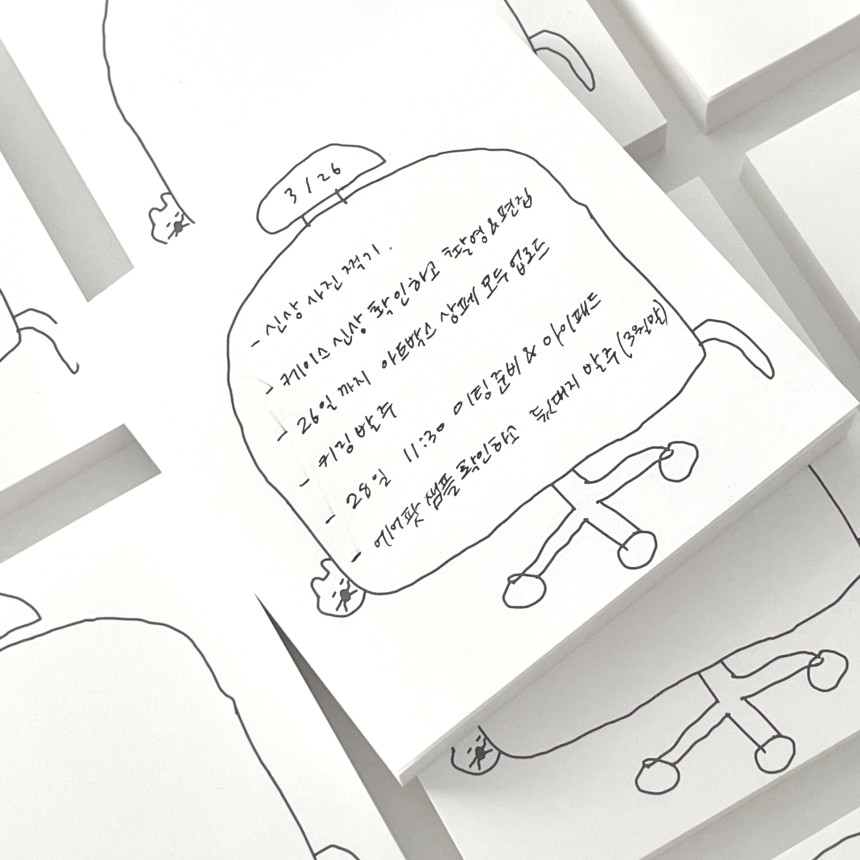 3/26
- 신상 사진 찍기.
- 케이스 신상 확인하고 촬영&편집
- 26일까지 아트박스 상페 모두 업로드
- 키링 발주
- 28일 11:30 미팅 준비 & 아이패드
- 에어팟 샘플 확인하고 발주 (3월말)